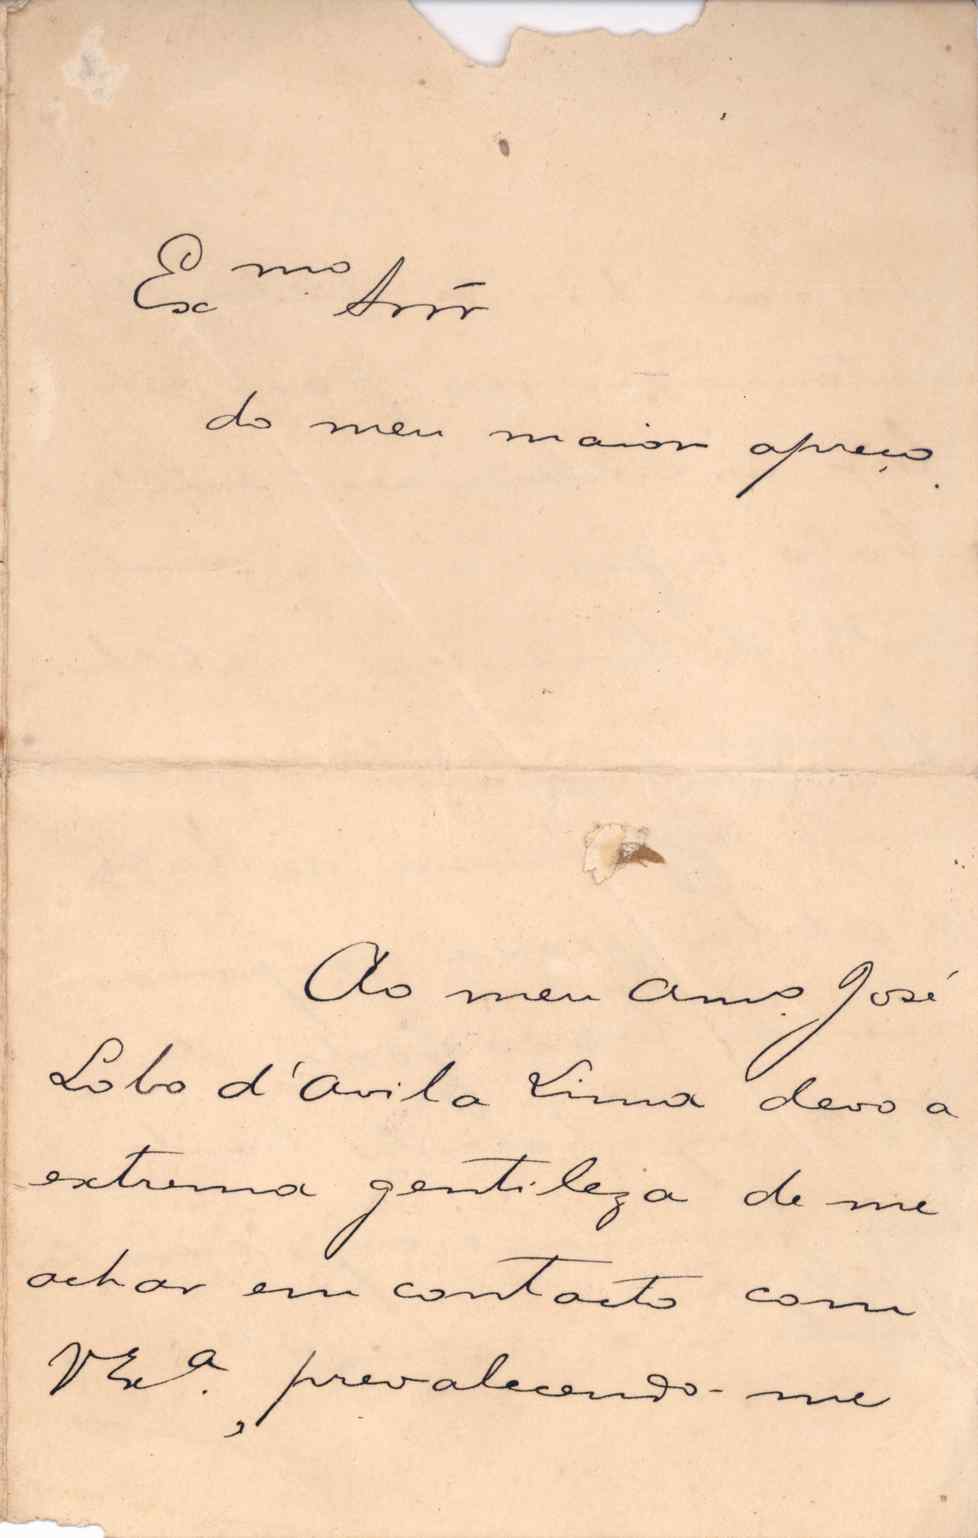 Ex.mo Snr̄
do meu maior apreço.
Ao meu amo. José
Lobo d'Avila Lima devo a
extrema gentileza de me
achar em contacto com
V Ex.a, prevalecendo-me